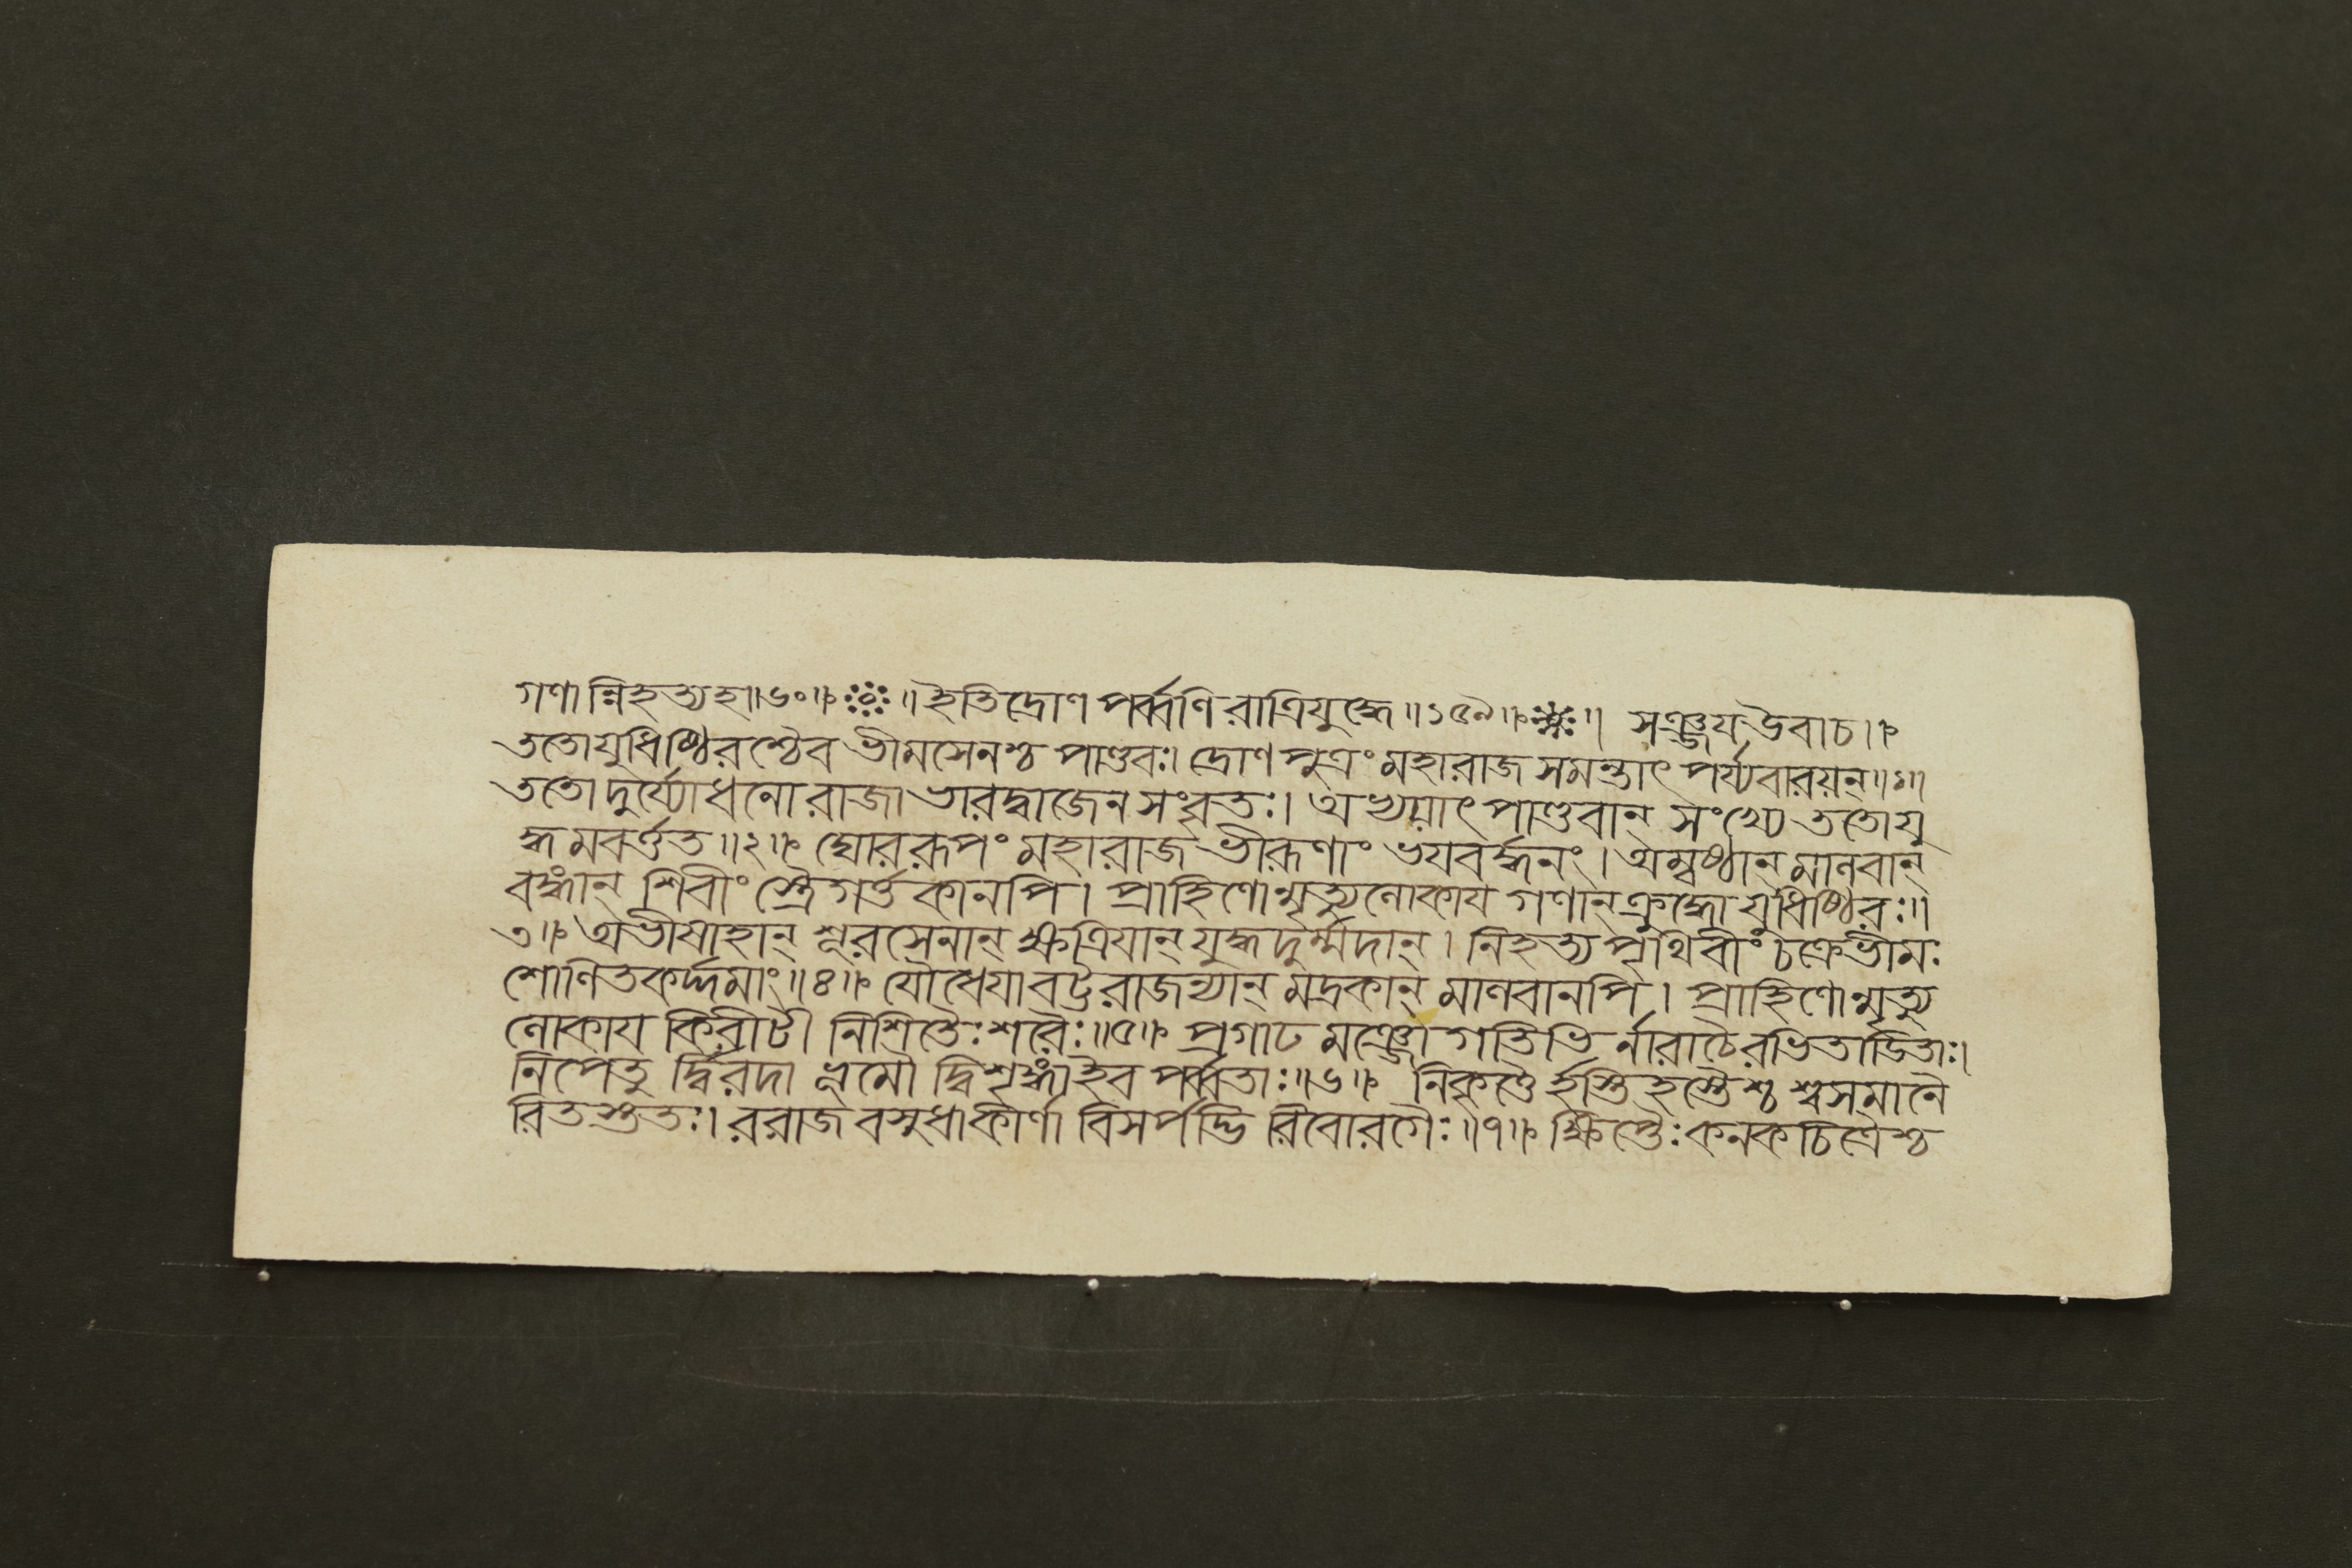 গণান্নিহত্যহ॥৬০॥ ॥ইতিদ্রোণপর্ব্বণিরাত্রিযুদ্ধে॥১৫৯॥ ॥ সঞ্জয়উবাচ॥
ততোযুধিষ্ঠিরশ্চৈব ভীমসেনশ্চ পাণ্ডবঃ। দ্রোণপুত্রং মহারাজ সমন্তাৎ পর্য্যবারয়ন্॥১॥
ততো দুর্য্যোধনো রাজা ভারদ্বাজেন সংবৃতঃ। অভ্যয়াৎ পাণ্ডবান্ সংখ্যে ততোযু
দ্ধমবর্ত্তত॥২॥ ঘোররূপং মহারাজ ভীরূণাং ভয়বর্দ্ধনং। অম্বষ্ঠান্ মানবান্
বঙ্গান্ শিবীং স্ত্রৈগর্ত্তকানপি। প্রাহিণোন্মৃত্যুলোকায় গণান্ ক্রুদ্ধো যুধিষ্ঠিরঃ॥
৩॥ অভীষাহান্ শূরসেনান্ ক্ষত্রিয়ান্ যুদ্ধদুর্ম্মদান্। নিহত্য পৃথিবীং চক্রে ভীমঃ
শোণিতকর্দ্দমাং॥৪॥ যৌধেয়াবট্টরাজন্যান্ মদ্রকান্ মানবানপি। প্রাহিণোন্মৃত্যু
লোকায় কিরীটী নিশিতৈঃ শরৈঃ॥৫॥ প্রগাঢমঞ্জোগতিভির্নারাচৈরভিতাডিতাঃ।
নিপেতুর্দ্বিরদা ভূমৌ দ্বিশৃঙ্গাইব পর্ব্বতাঃ॥৬॥ নিকৃত্তৈর্হস্তিহস্তৈশ্চ শ্বসমানৈ
রিতস্ততঃ। ররাজ বসুধাকীর্ণা বিসর্পদ্ভিরিবোরগৈঃ॥৭॥ ক্ষিপ্তৈঃ কনকচিত্রৈশ্চ